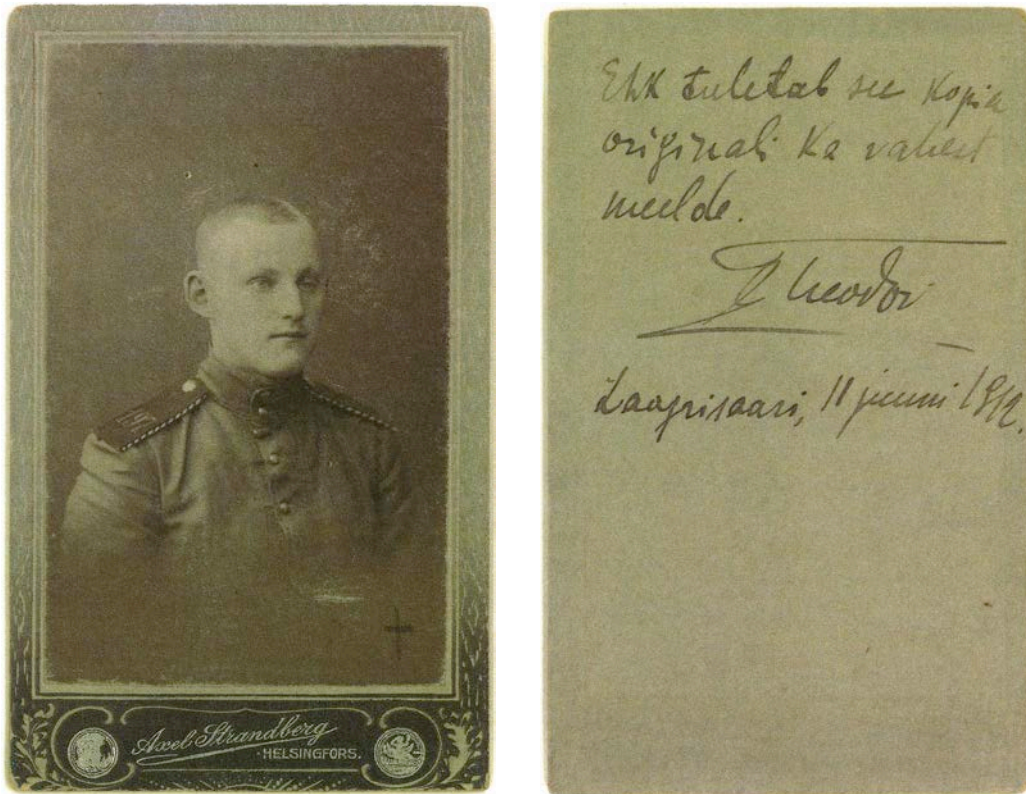 Axel Strandberg
HELSINGFORS.
Ehk tuletab see kopia
originali ka vahest
meelde.
Theodor
Laagrisaari, 11 juuni 1912.